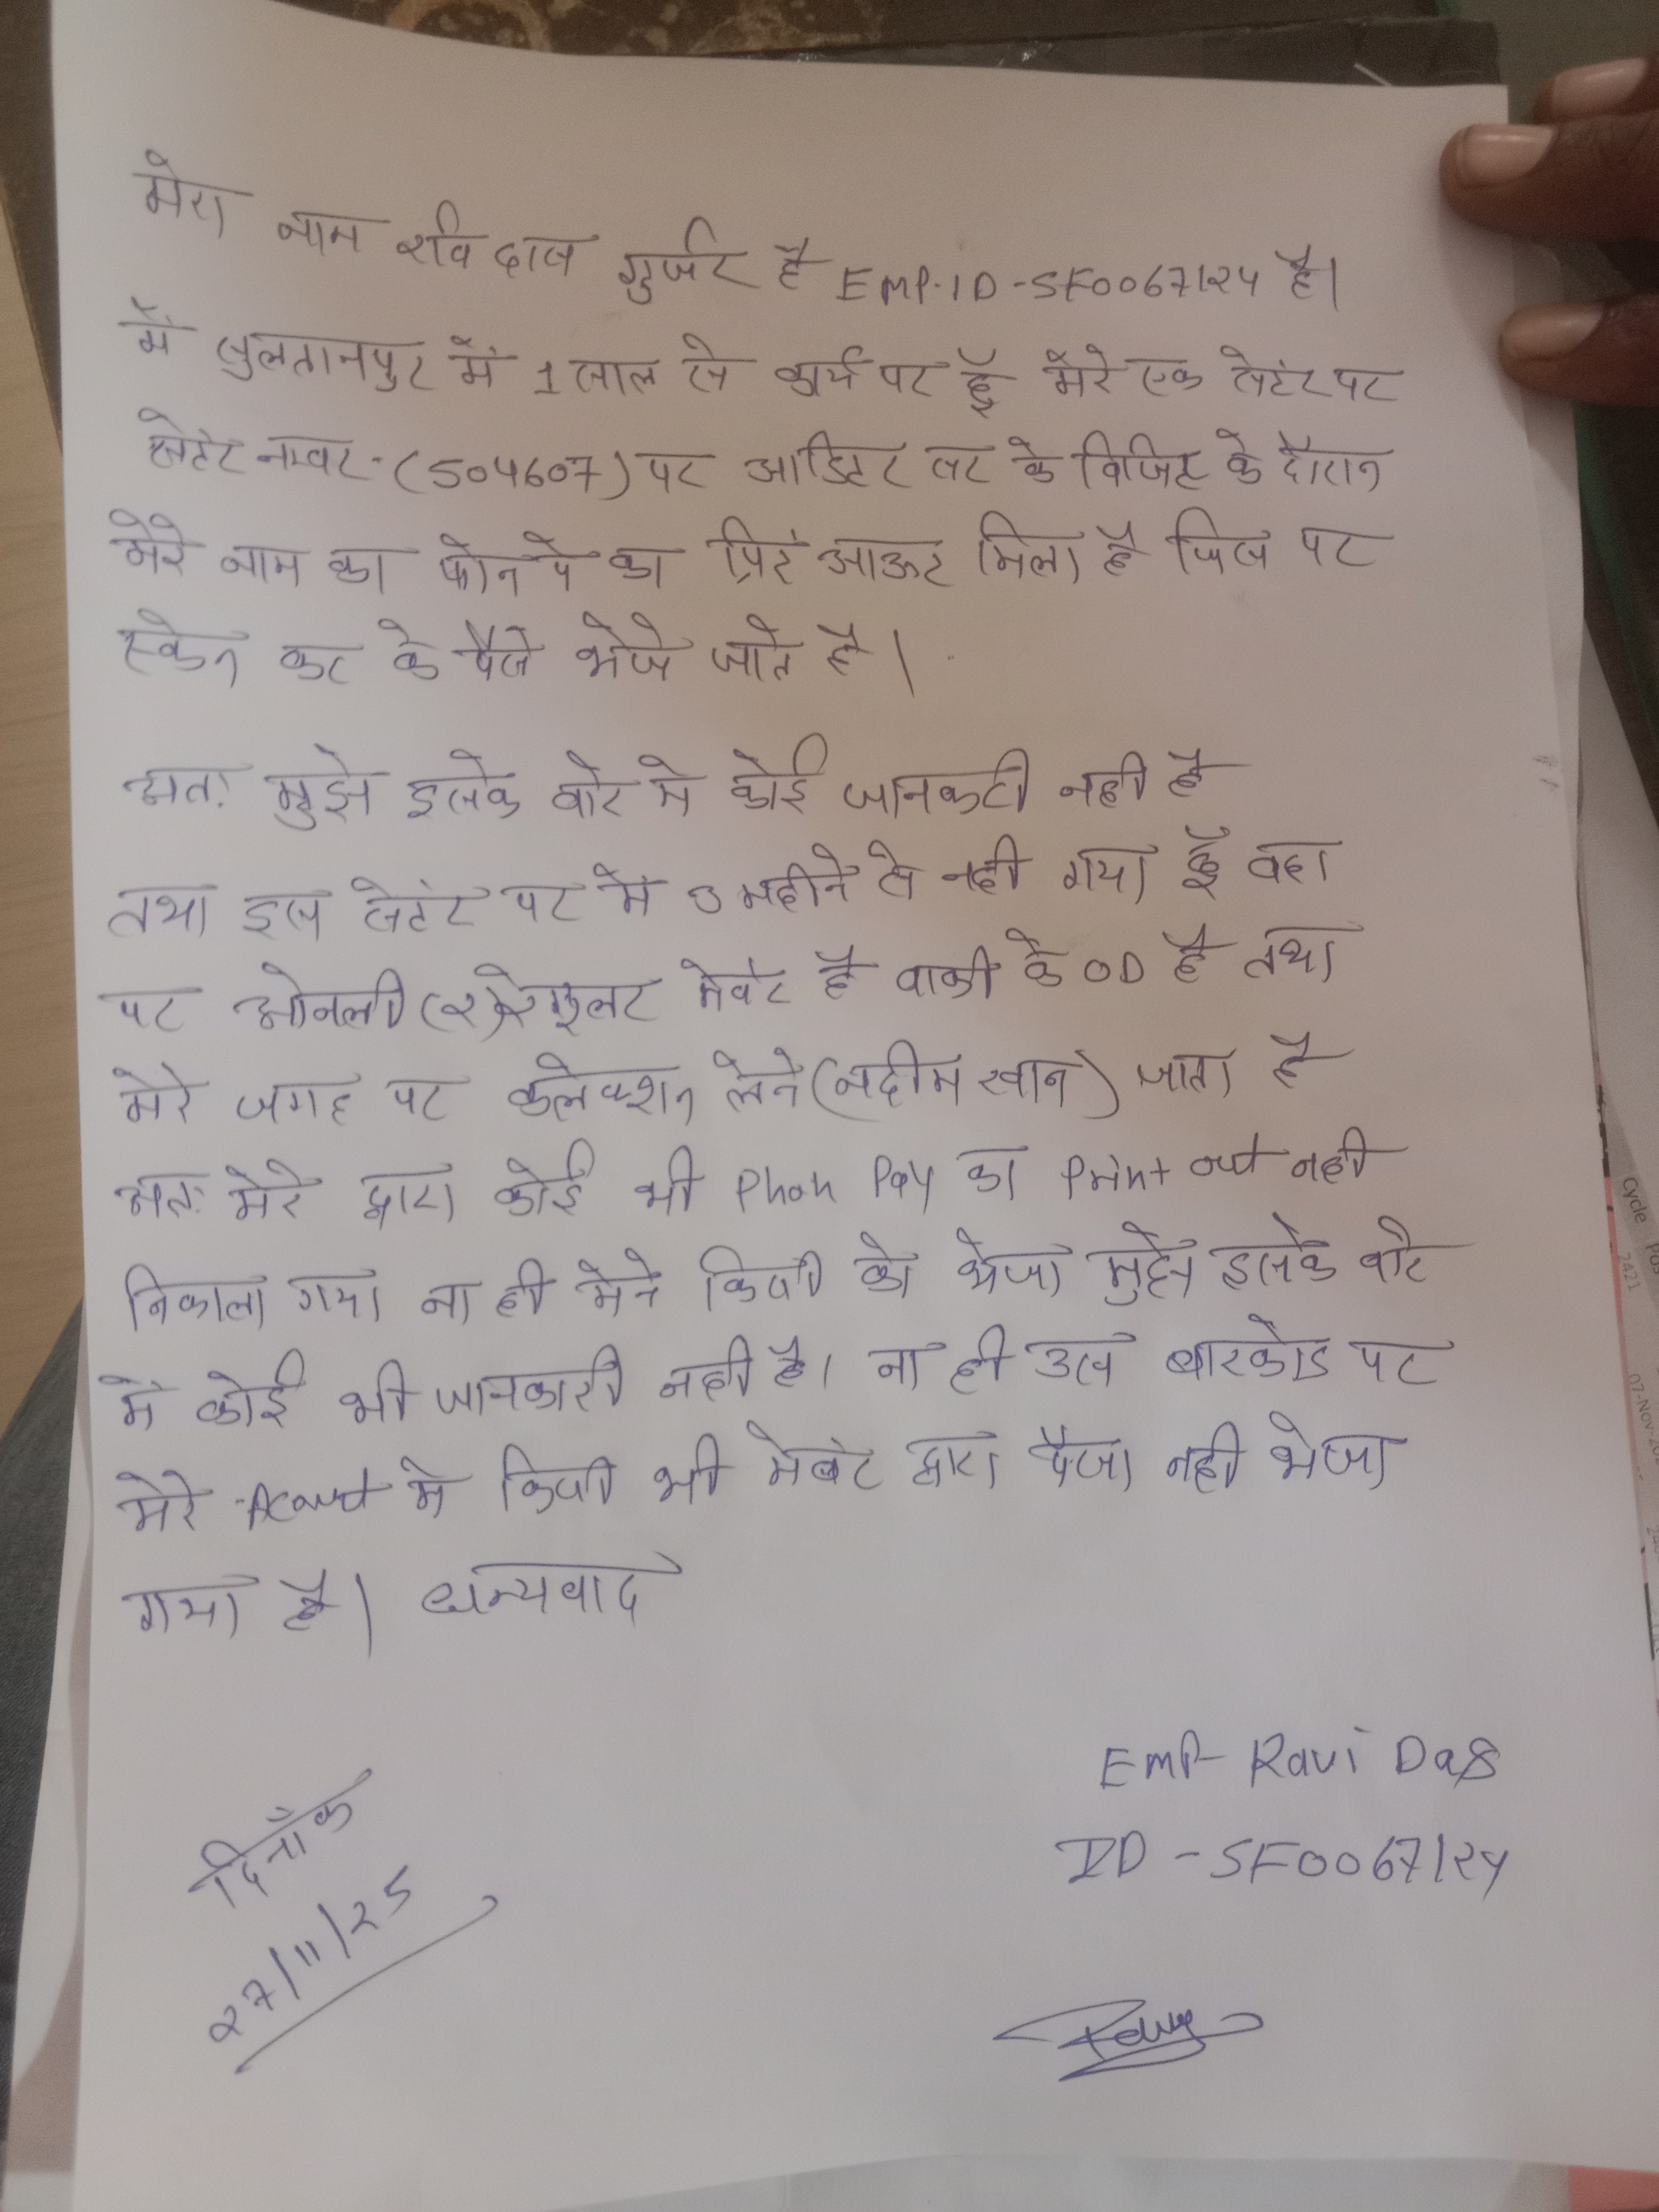 मेरा नाम रवि दास गुर्जर है EMP.ID-SF0067124 है।
में सुलतानपुर में 1 साल से कार्य पर हूँ मेरे एक सेटंर पर
सेटंर नम्बर-(504607) पर आडिटर सर के विजिट के दौरान
मेरे नाम का फोन पे का प्रिटं आऊट मिला है जिस पर
स्केन कर के पैसे भेजे जाते है।
अतः मुझे इसके बारे मे कोई जानकरी नही है
तथा इस सेटंर पर में 3 महीने से नही गया हूँ वहा
पर ओनली (२) रेगुलर मेंबर है बाकी के OD है तथा
मेरे जगह पर कलेक्शन लेने (नदीम खान) जाता है
अतः मेरे द्वारा कोई भी Phon Pay का Print out नही
निकाला गया ना ही मेने किसी को भेजा मुझे इसके बारे
में कोई भी जानकारी नही है। ना ही उस बारकोड पर
मेरे Acount मे किसी भी मेबंर द्वारा पैसा नही भेजा
गया है। धन्यवाद
EMP- Ravi Das
ID - SF0067124
दिनाँक
२7/11/२5
Ravi
Cycle Pos
2421
07-Nov-20